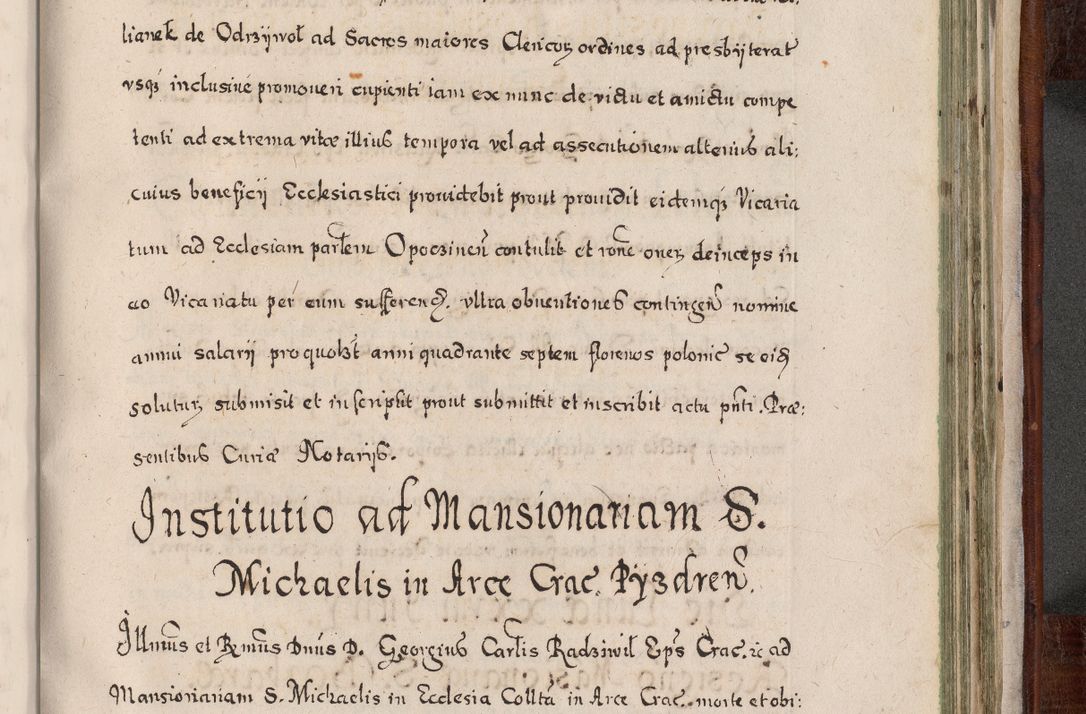 lianek de Odrzywoł ad Sacros maiores Clericoꝝ ordines ad presbÿterat
vsqꝫ inclusiuè promoueri cupienti iam ex nunc de victu et amictu compe
tenti ad extrema vitæ illius tempora vel ad assecutionem alterius ali:
cuius beneficij Ecclesiastici prouidebit prout prouidit eidemqꝫ Vicaria
tum ad Ecclesiam parlem Opoczineñ contulit et rone oneꝝ deinceps in
eo Vicariatu per eum sufferend. vltra obuentiones contingeñ nomine
annui salarij pro quolibt anni quadrante septem florenos polonic se eid
soluturꝫ submisit et inscripsit prout submittit et inscribit actu pñti. Præ:
sentibus Curiæ Notarijs.
Institutio ad Mansionariam S.
Michaelis in Arce Crac. Pyzdreñ.
Illmus et Rymus Dnus D. Georgius Carlis Radziwil Eps Crac. ꝛc ad
Mansionariam S. Michaelis in Ecclesia Collta in Arce Crac. morte et obi: